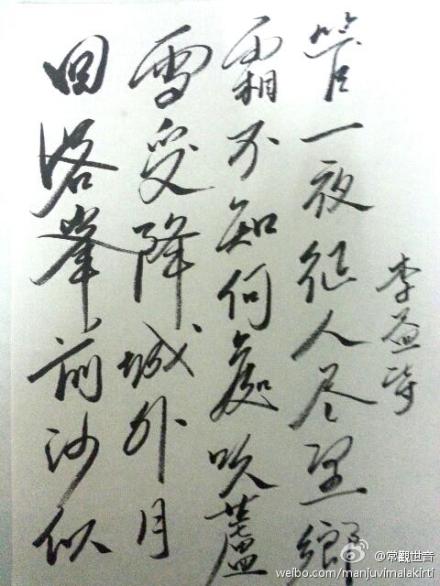 回洛峯前沙似
雪受降城外月
霜不知何處吹蘆
管一夜征人尽望鄉
李益诗
@常觀世音
weibo.com/manjuvimalakirti